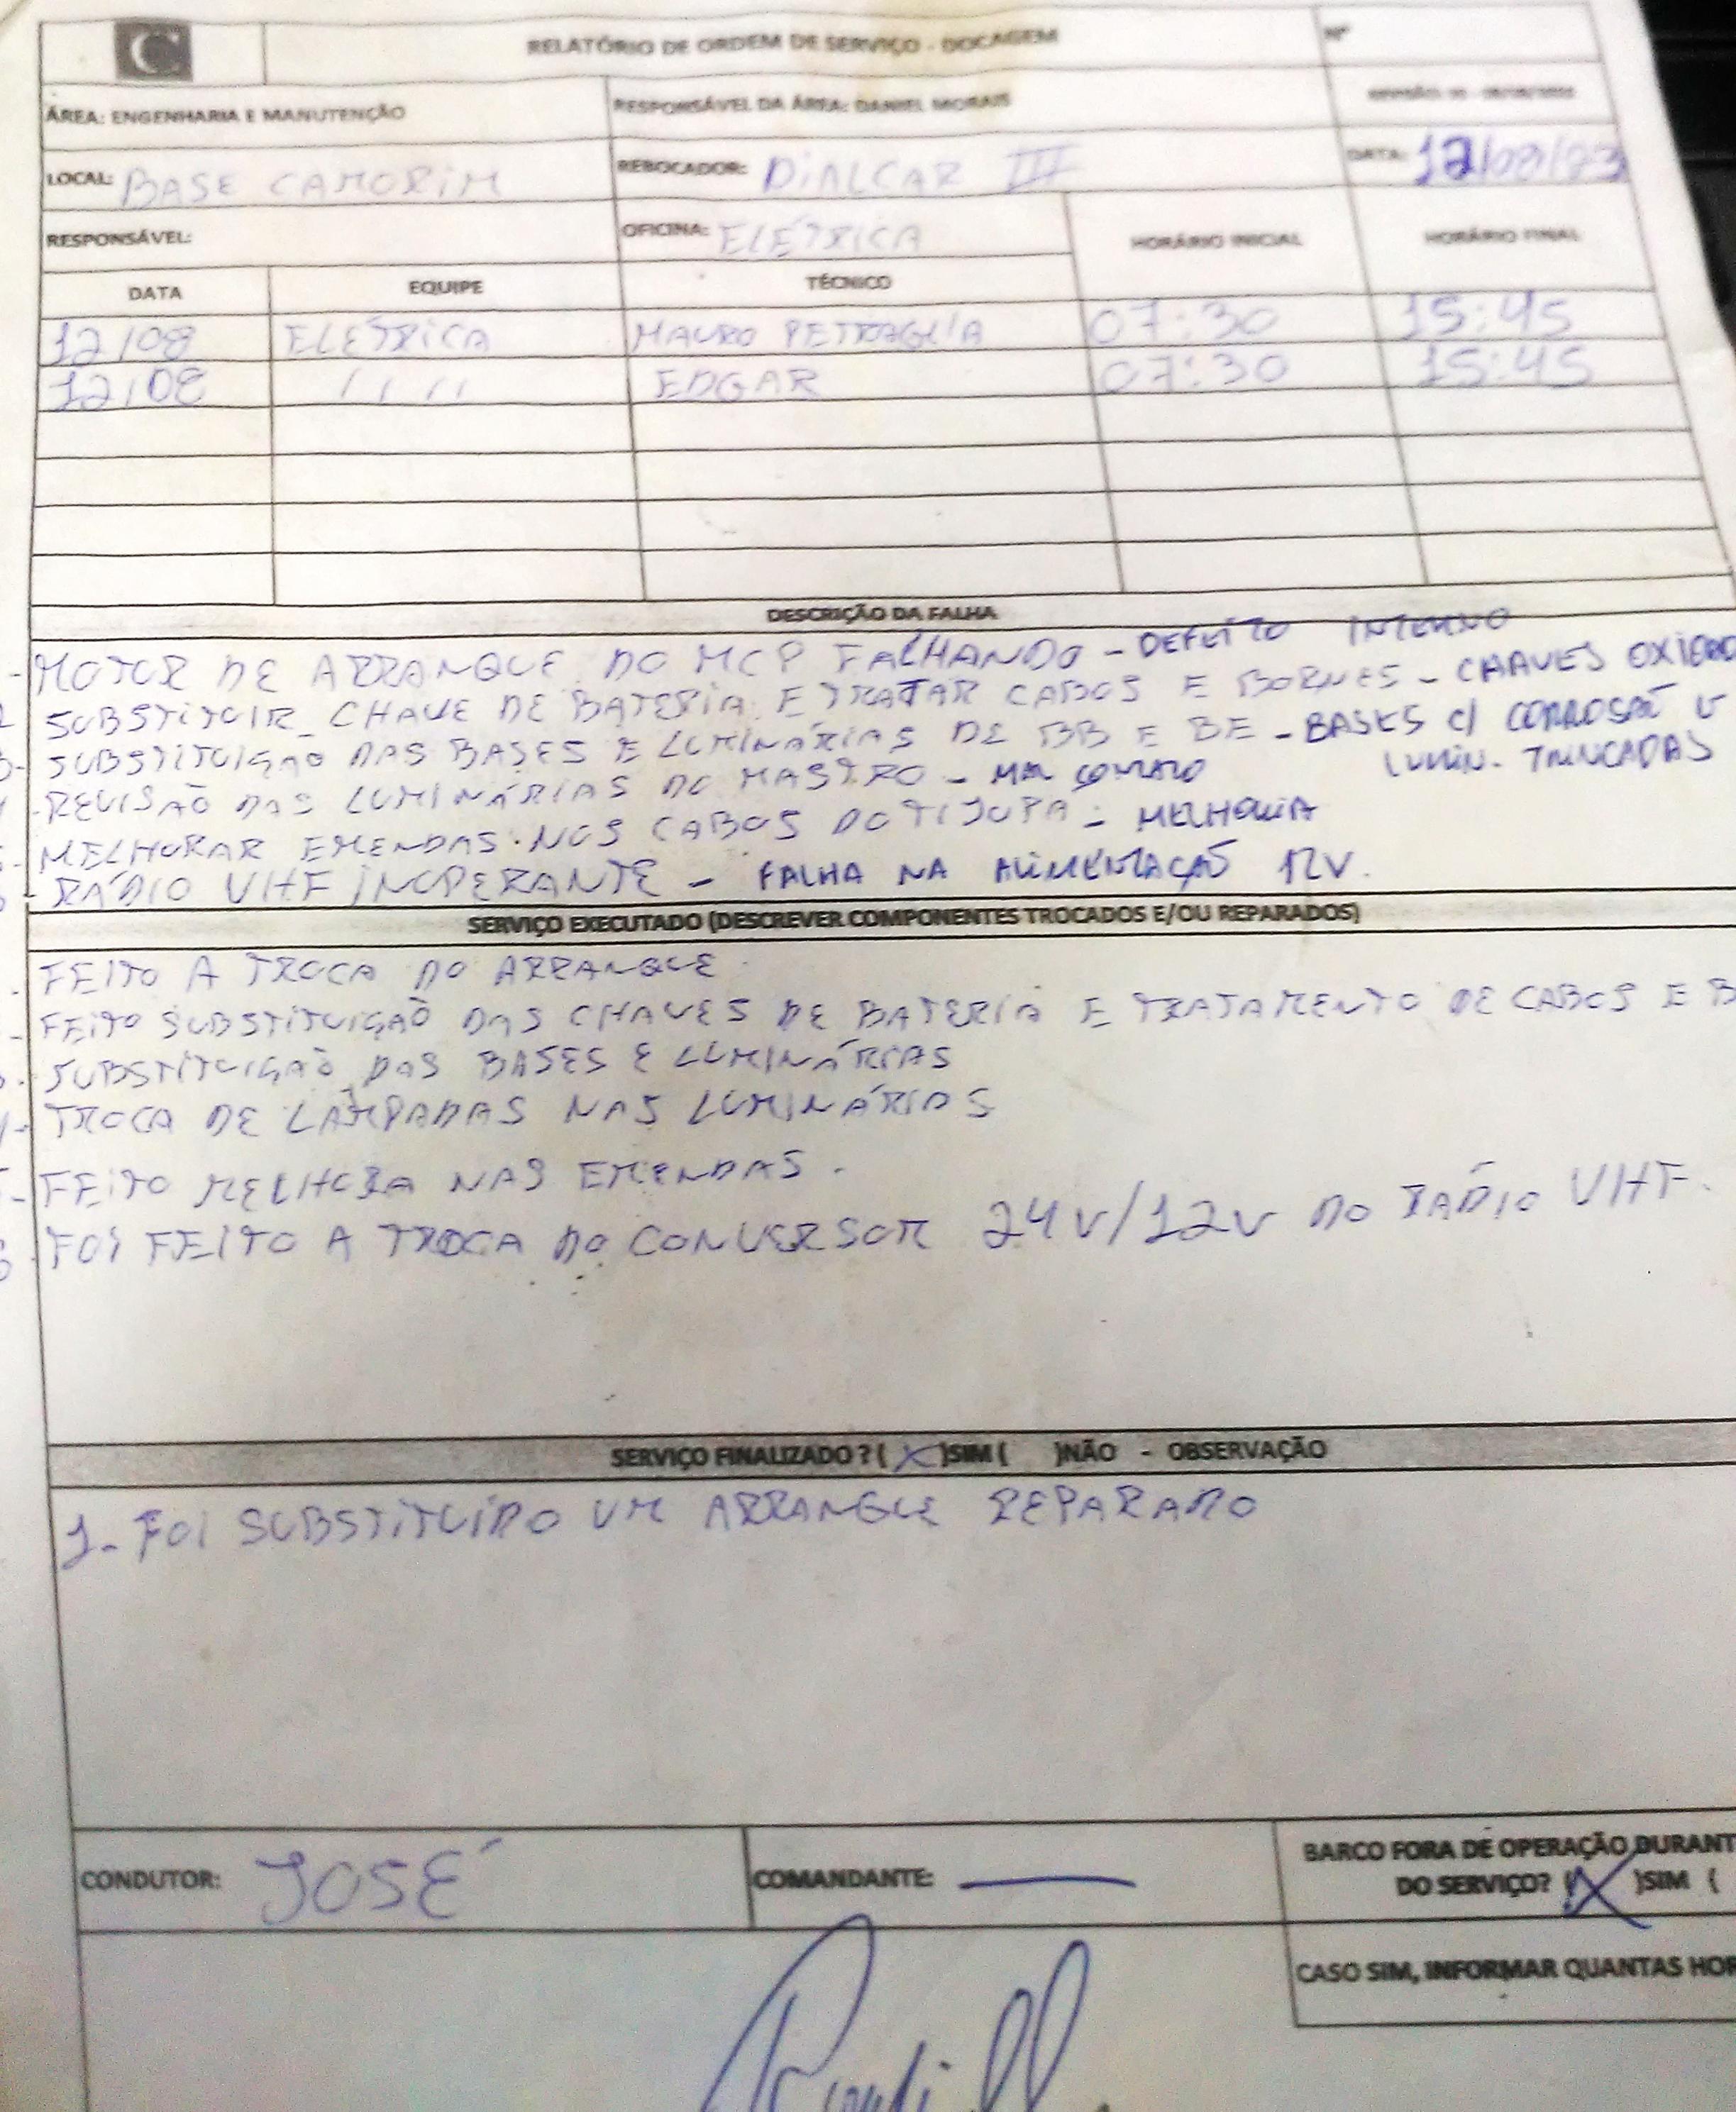 C
RELATÓRIO DE ORDEM DE SERVIÇO - DOCAGEM
Nº
ÁREA: ENGENHARIA E MANUTENÇÃO
RESPONSÁVEL DA ÁREA: DANIEL MORAIS
LOCAL: BASE CAMORIM
REBOCADOR: DIALCAR III
DATA: 12/08/23
RESPONSÁVEL:
OFICINA: ELÉTRICA
HORÁRIO INICIAL
HORÁRIO FINAL
DATA
EQUIPE
TÉCNICO
12/08 ELÉTRICA MAURO PETRAGLIA 07:30 15:45
12/08 / / / / EDGAR 07:30 15:45
DESCRIÇÃO DA FALHA
- MOTOR DE ARRANQUE DO MCP FALHANDO - DEFEITO INTERNO
SUBSTITUIR CHAVE DE BATERIA E TRATAR CABOS E BORNES - CHAVES
- SUBSTITUIÇÃO DAS BASES E LUMINÁRIAS DE BB E BE - BASES C/ CORROSÃO
LUMIN. TRINCADAS
- REVISÃO DAS LUMINÁRIAS DO MASTRO - MAL CONTATO
- MELHORAR EMENDAS NOS CABOS DO TIJUPA - MELHORIA
- RÁDIO VHF INOPERANTE - FALHA NA ALIMENTAÇÃO 12V.
SERVIÇO EXECUTADO (DESCREVER COMPONENTES TROCADOS E/OU REPARADOS)
- FEITO A TROCA DO ARRANQUE
- FEITO SUBSTITUIÇÃO DAS CHAVES DE BATERIA E TRATAMENTO DE CABOS E B
- SUBSTITUIÇÃO DAS BASES E LUMINÁRIAS
- TROCA DE LÂMPADAS NAS LUMINÁRIAS
- FEITO MELHORA NAS EMENDAS.
FOI FEITO A TROCA DO CONVERSOR 24V/12V DO RÁDIO VHF.
SERVIÇO FINALIZADO ? ( X )SIM ( )NÃO - OBSERVAÇÃO
1- FOI SUBSTITUÍDO UM ARRANQUE REPARADO
CONDUTOR: JOSÉ
COMANDANTE: —
BARCO FORA DE OPERAÇÃO DURANT
DO SERVIÇO? (X)SIM (
CASO SIM, INFORMAR QUANTAS HOR